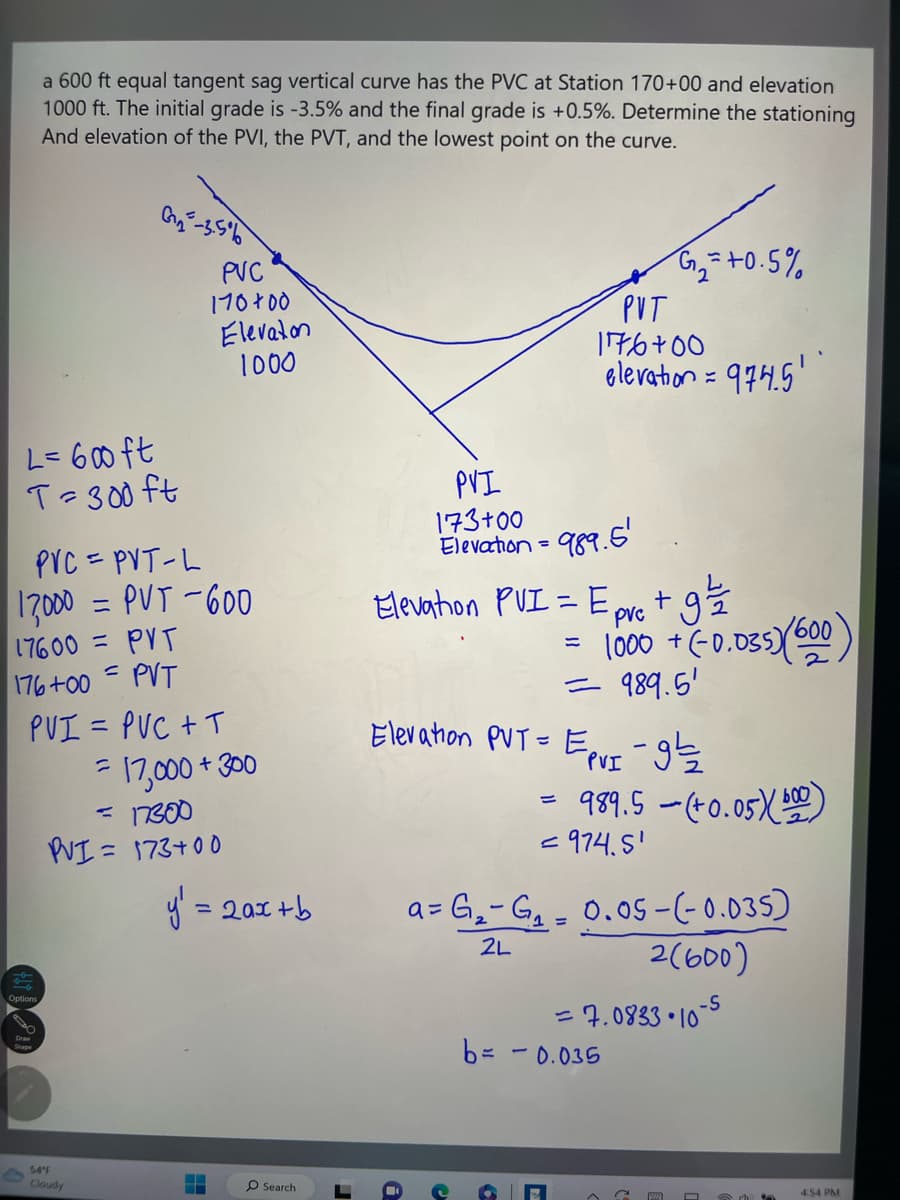 a 600 ft equal tangent sag vertical curve has the PVC at Station 170+00 and elevation
1000 ft. The initial grade is -3.5% and the final grade is +0.5%. Determine the stationing
And elevation of the PVI, the PVT, and the lowest point on the curve.
G₁=-3.5%
PVC
170+00
Elevaton
1000
G₂=+0.5%
PVT
176+00
elevation = 974.5'
L= 600 ft
T = 300 ft
PVI
173+00
Elevation = 989.5'
PVC = PVT-L
17000 = PVT -600
17600 = PVT
176+00 = PVT
PVI = PVC + T
= 17,000 + 300
= 17300
PVI = 173+00
Elevation PVI = E pvc + g L/2
= 1000 + (-0.035)(600/2)
= 989.5'
Elevation PVT = E PVI - g L/2
= 989.5 -(+0.05)(600/2)
= 974.5'
y' = 2ax +b
a = G₂-G₁/2L = 0.05-(-0.035)/2(600)
= 7.0833•10⁻⁵
b= -0.035
Options
Draw
Shape
54°F
Cloudy
Search
4:54 PM